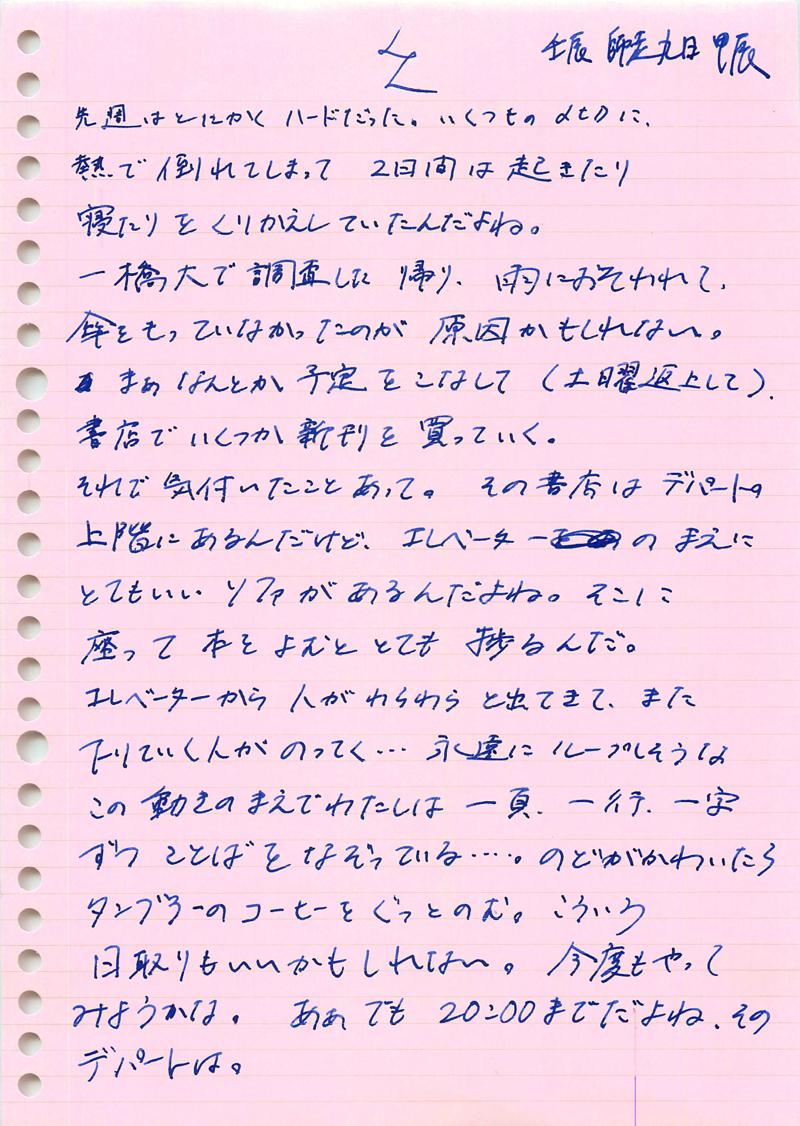 壬辰 師走九日 甲辰
先週はとにかくハードだった。いくつもの〆切に、
熱で倒れてしまって 2日間は起きたり
寝たりをくりかえしていたんだよね。
一橋大で調査した帰り、雨におそわれて、
傘をもっていなかったのが原因かもしれない。
まぁなんとか予定をこなして（土曜返上して）、
書店でいくつか新刊を買っていく。
それで気付いたことあって。その書店はデパートの
上階にあるんだけど、エレベーターのまえに
とてもいいソファがあるんだよね。そこに
座って本をよむととても捗るんだ。
エレベーターから人がわらわらと出てきて、また
下りていく人がのってく… 永遠にループしそうな
この動きのまえでわたしは一頁、一行、一字
ずつことばをなぞっている….。のどがかわいたら
タンブラーのコーヒーをぐっとのむ。こういう
日取りもいいかもしれない。今度もやって
みようかな。あぁでも20:00までだよね、その
デパートは。